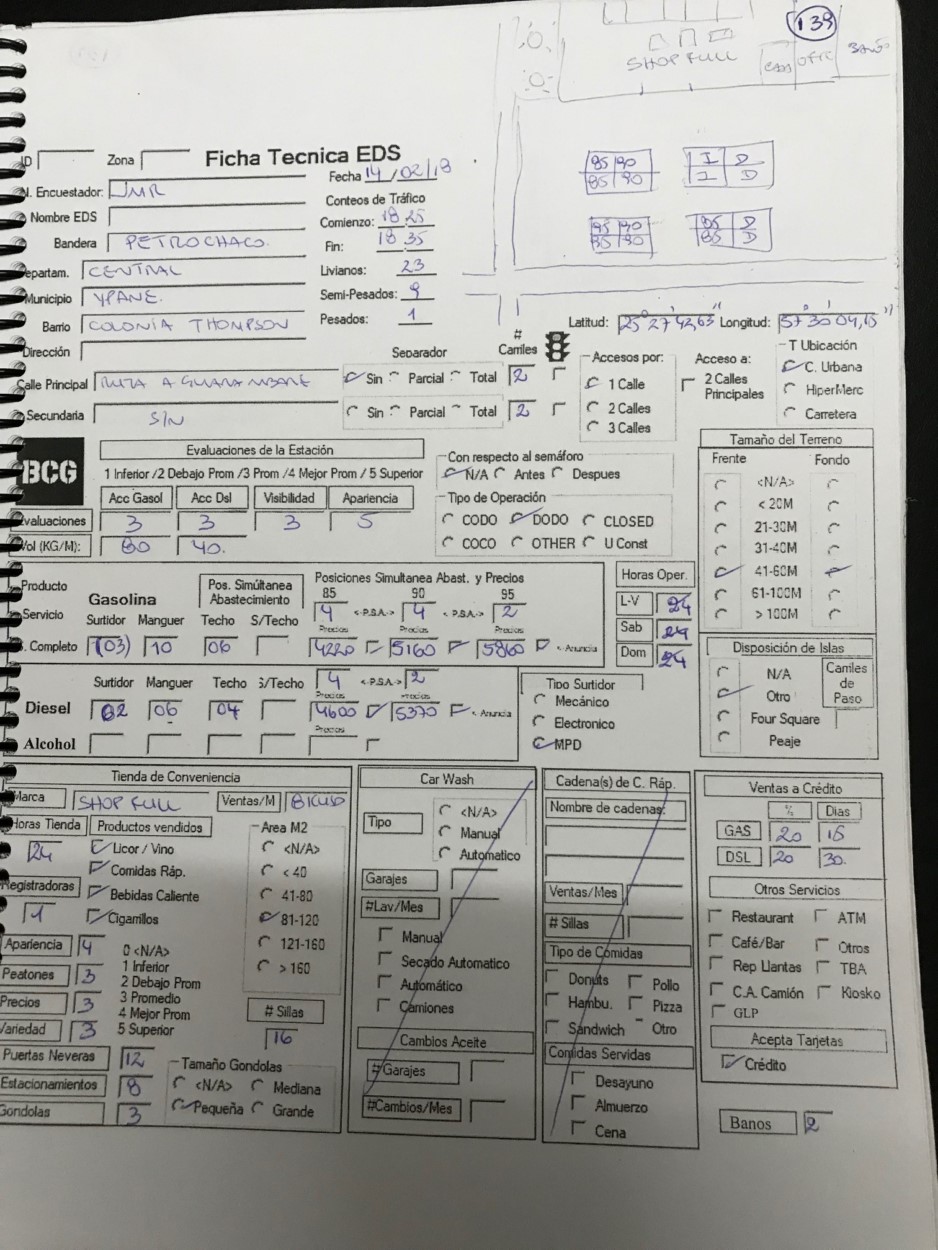 139
SHOP FULL
OFIC
BAÑO
85 90
85 90
I D
I D
95 90
85 90
85 D
85 D
ID
Zona
Ficha Tecnica EDS
Fecha 14/02/18
N. Encuestador: JMR
Conteos de Tráfico
Nombre EDS
Comienzo: 18:25
Bandera PETROCHACO.
Fin: 18:35
Departam. CENTRAL
Livianos: 23
Municipio YPANE.
Semi-Pesados: 9
Barrio COLONIA THOMPSON
Pesados: 1
Latitud: 25° 27' 42,63" Longitud: 57° 30' 04,15"
Dirección
Separador
# Carriles
Accesos por:
Acceso a:
T Ubicación
Calle Principal RUTA A GUARAMBARE
Sin Parcial Total 2
1 Calle
2 Calles Principales
C. Urbana
HiperMerc
Secundaria S/N
Sin Parcial Total 2
2 Calles
3 Calles
Carretera
BCG
Evaluaciones de la Estación
1 Inferior /2 Debajo Prom /3 Prom /4 Mejor Prom / 5 Superior
Acc Gasol Acc Dsl Visibilidad Apariencia
Evaluaciones 3 3 3 5
Vol (KG/M): 60 40.
Con respecto al semáforo
N/A Antes Despues
Tipo de Operación
CODO DODO CLOSED
COCO OTHER U Const
Tamaño del Terreno
Frente Fondo
<N/A>
< 20M
21-30M
31-40M
41-60M
61-100M
> 100M
Producto
Servicio
Completo
Gasolina
Pos. Simúltanea Abastecimiento
Posiciones Simultanea Abast. y Precios
85 90 95
4 <-P.S.A.-> 4 <-P.S.A.-> 2
Surtidor Manguer Techo S/Techo
Precios Precios Precios
(03) 10 06 4220 5160 5860 <- Anuncia
Horas Oper.
L-V 24
Sab 24
Dom 24
Surtidor Manguer Techo S/Techo
4 <-P.S.A.-> 2
Precios Precios
Diesel 02 06 04 4600 5370 <- Anuncia
Precios
Alcohol
Tipo Surtidor
Mecánico
Electronico
MPD
Disposición de Islas
N/A
Otro
Four Square
Peaje
Carriles de Paso
Tienda de Conveniencia
Marca SHOP FULL Ventas/M
Horas Tienda 24
Productos vendidos
Licor / Vino
Comidas Ráp.
Bebidas Caliente
Cigarrillos
Registradoras 1
Area M2
<N/A>
< 40
41-80
81-120
121-160
> 160
Apariencia 4
Peatones 3
Precios 3
Variedad 3
0 <N/A>
1 Inferior
2 Debajo Prom
3 Promedio
4 Mejor Prom
5 Superior
# Sillas
16
Puertas Neveras 12
Estacionamientos 8
Gondolas 3
Tamaño Gondolas
<N/A> Mediana
Pequeña Grande
Car Wash
Tipo
<N/A>
Manual
Automatico
Garajes
#Lav/Mes
Manual
Secado Automatico
Automático
Camiones
Cambios Aceite
# Garajes
#Cambios/Mes
Cadena(s) de C. Ráp.
Nombre de cadenas:
Ventas/Mes
# Sillas
Tipo de Comidas
Donuts Pollo
Hambu. Pizza
Sandwich Otro
Comidas Servidas
Desayuno
Almuerzo
Cena
Ventas a Crédito
% Dias
GAS 20 15
DSL 20 30.
Otros Servicios
Restaurant ATM
Café/Bar Otros
Rep Llantas TBA
C.A. Camión Kiosko
GLP
Acepta Tarjetas
Crédito
Banos 2